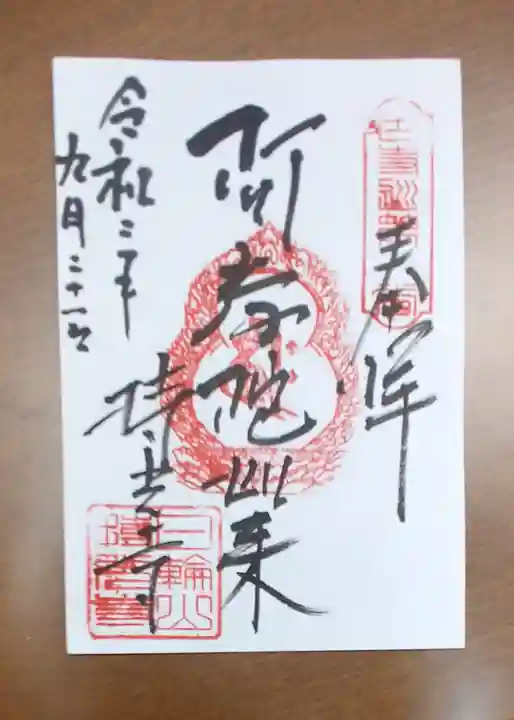 奉拝
阿弥陀如来
令和二年
九月二十一日
三輪山